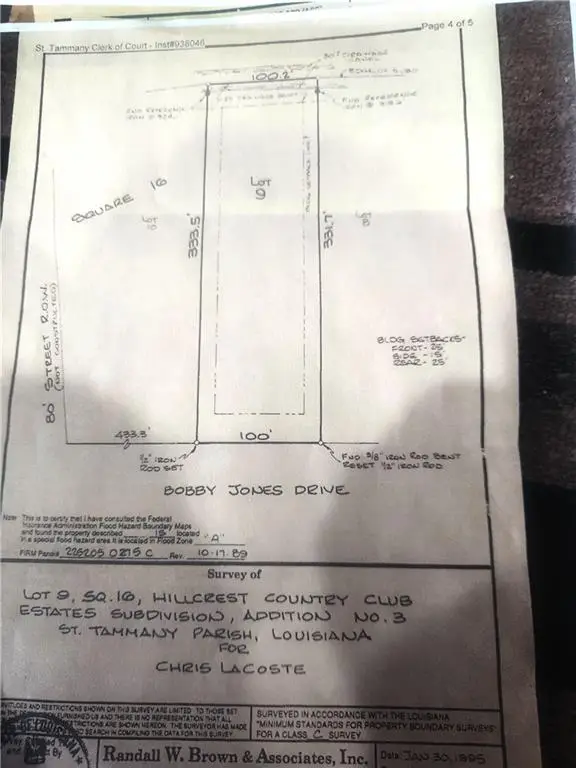 Page 4 of 5
St. Tammany Clerk of Court - Inst#938046
100.2'
LOT
9
SQUARE 16
333.5'
331.7'
80' STREET R.O.W.
(NOT CONSTRUCTED)
BLDG SETBACKS-
FRONT - 25'
SIDE - 15'
REAR - 25'
433.3'
100'
1/2" IRON
ROD SET
FND 5/8" IRON ROD BENT
RESET 1/2" IRON ROD
BOBBY JONES DRIVE
Note: This is to certify that I have consulted the Federal
Insurance Administration Flood Hazard Boundary Maps
and found the property described IS located
in a special flood hazard area. It is located in Flood Zone "A"
FIRM Panel# 225205 0275 C Rev. 10-17-89
Survey of
LOT 9, SQ. 16, HILLCREST COUNTRY CLUB
ESTATES SUBDIVISION, ADDITION NO. 3
ST. TAMMANY PARISH, LOUISIANA
FOR
CHRIS LACOSTE
AND RESTRICTIONS SHOWN ON THIS SURVEY ARE LIMITED TO THOSE SET
FURNISHED US AND THERE IS NO REPRESENTATION THAT ALL
RESTRICTIONS ARE SHOWN HEREON. THE SURVEYOR HAS MADE
SEARCH IN COMPILING THE DATA FOR THIS SURVEY.
SURVEYED IN ACCORDANCE WITH THE LOUISIANA
"MINIMUM STANDARDS FOR PROPERTY BOUNDARY SURVEYS"
FOR A CLASS C SURVEY.
Randall W. Brown & Associates, Inc.
Date: JAN 30, 1995